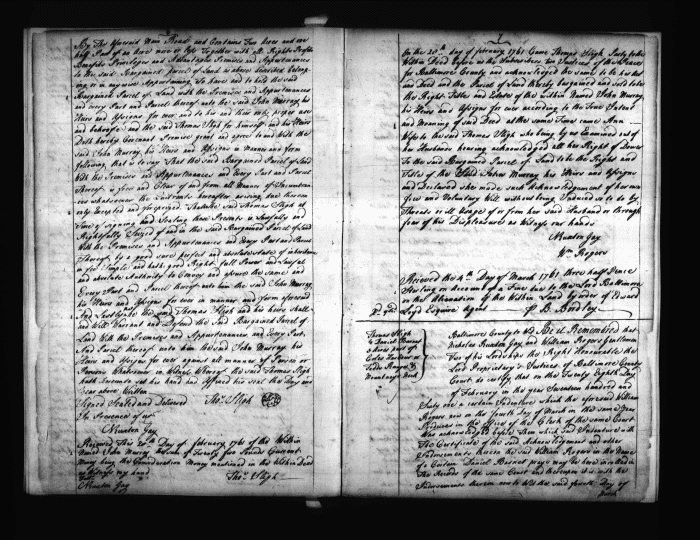 By The aforesaid Main Road and Contains Two Acres and one
half Part of an Acre more or less Together with all Rights Profits
Benefits Priviledges and Advantages Premises and Appurtenances
to the said Bargained Parcel of Land as above described belong-
ing or in anywise Appertaining To have and to hold the said
Bargained Parcel of Land with the Premises and Appurtenances
and every Part and Parcel thereof unto the said John Murray, his
Heirs and Assigns for ever and to his and their only proper use
and behoofe and the said Thomas Sligh for himself and his Heirs
Doth hereby Covenant Promise grant and agree to and with the
said John Murray, his Heirs and Assigns in Manner and form
following, that is to say That the said Bargained Parcel of Land
With the Premises and Appurtenances and Every Part and Parcel
Thereof is free and Clear of and from all Manner of Incumbran-
ces whatsoever the Quitrents hereafter arising due thereon
only Excepted and foreprized That the said Thomas Sligh at
Time of signing and Sealing these Presents is Lawfully and
Rightfully Seized of and in the said Bargained Parcel of Land
With the Premises and Appurtenances and Every Part and Parcel
Thereof by a good sure perfect and absolute estate of inheritance
in fee Simple and hath good Right full Power and Lawful
and absolute Authority to Convey and assure the same and
Every Part and Parcel thereof unto him the said John Murray,
his Heirs and Assigns for ever in manner and form aforesaid
And Lastly the said Thomas Sligh and his heirs shall
and Will Warrant and Defend the said Bargained Parcel of
Land With the Premises and Appurtenances and Every Part
And Parcel thereof unto him the said John Murray his
Heirs and Assigns for ever against all manner of Person or
Persons Whatsoever in Witness Whereof the said Thomas Sligh
hath hereunto set his hand and Affixed his seal the Day and
Year above Written
Signed Sealed and Delivered Thos. Sligh
In Presence of us
NRuxton Gay
Received This 20th Day of February 1761 of the Within
Named John Murray the sum of Twenty five Pounds Current
Money being the Consideration Money mentioned in the Within Deed
as Witness my hand
Thos. Sligh
NRuxton Gay
On the 20th day of February 1761 Came Thomas Sligh Party to the
Within Deed before us the Subscribers two Justices of the Peace
for Baltimore County and acknowledged the same to be his Act
and Deed and the Parcel of Land thereby bargained and sold to be
the Right and Estate of the Within Named John Murray
his Heirs and Assigns for ever according to the True Intent
and Meaning of said Deed at the same Time came Ann
Wife to the said Thomas Sligh who being by us Examined out of
her Husbands hearing acknowledged all her Right of Dower
To the said Bargained Parcel of Land to be the Right and
Title of the Said John Murray his Heirs and Assigns
and Declared she made such Acknowledgement of her own
free and Voluntary Will without being Induced so to do by
Threats or ill Usage of or from her said Husband or through
fear of his Displeasure as Witness our hands
NRuxton Gay
Wm Rogers
Received the 4th Day of March 1761 three half Pence
Sterling on Account of a Fine due to the Lord Baltimore
on the Alienation of the Within Land by order of Edward
Loyd Esquire Agent P B. Bordley
Thomas Sligh
to Daniel Barnet
Baltimore County to Wit Be it Remembred that
Nicholas Ruxton Gay, and William Rogers Gentlemen
Two of his Lordships the Right Honourable the
Lord Proprietary's Justices of Baltimore County
Court do certify that on the Twenty Eighth Day
of February in the year Seventeen hundred and
Sixty one a certain Indenture which the aforesaid William
Rogers now on the fourth Day of March in the same Year
Produces in the Office of the Clerk of the same County
Was acknowledged before Them which said Indenture with
The Certificate of the said Acknowledgement and other
Indorsements thereon the said William Rogers in the Name
of a Certain Daniel Barnet prays may be here inrolled in
The Records of the same Court and the tenor is with the
Indorsements thereon now to Wit the said fourth Day of
March